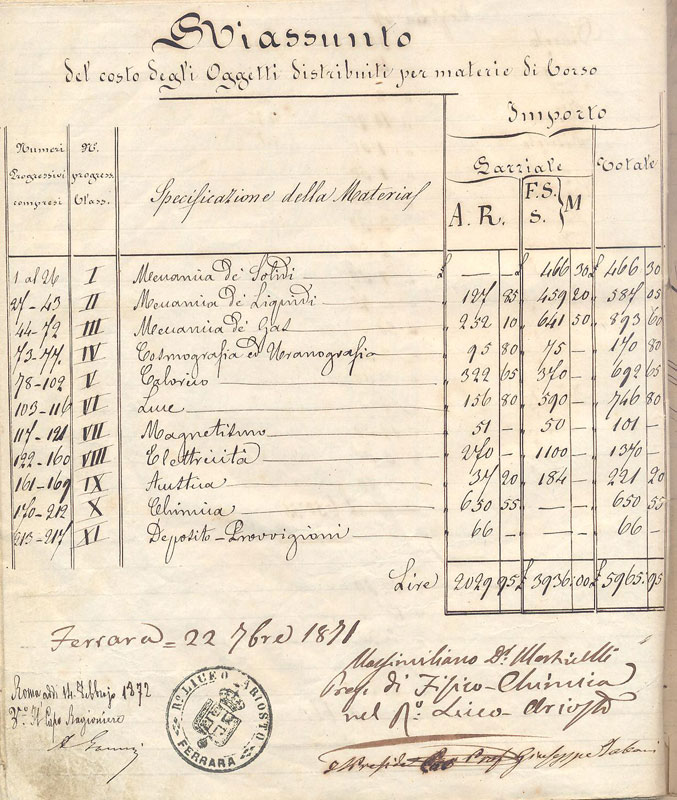 Riassunto
del costo degli Oggetti distribuiti per materie di Corso
Numeri Progressivi compresi | N.° progress. Class. | Specificazione della Materia | Importo
Parziale | Totale
A. R. | F. S. S. } M
1 al 26 | I | Meccanica de' Solidi | £ — — | £ 466 30 | £ 466 30
27-43 | II | Meccanica de' Liquidi | " 127 85 | " 459 20 | " 587 05
44-72 | III | Meccanica de' Gas | " 252 10 | " 641 50 | " 893 60
73-77 | IV | Cosmografia ed Uranografia | " 95 80 | " 75 — | " 170 80
78-102 | V | Calorico | " 322 65 | " 370 — | " 692 65
103-116 | VI | Luce | " 156 80 | " 590 — | " 746 80
117-121 | VII | Magnetismo | " 51 — | " 50 — | " 101 —
122-160 | VIII | Elettricità | " 270 — | " 1100 — | " 1370 —
161-169 | IX | Acustica | " 37 20 | " 184 — | " 221 20
170-212 | X | Chimica | " 650 55 | " — — | " 650 55
213-217 | XI | Deposito-Provvigioni | " 66 — | " — — | " 66 —
Lire | 2029 95 | £ 3936 00 | £ 5965 95
Ferrara = 22 7bre 1871
Massimiliano Dr.
Prof. di Fisico-Chimica
nel R.° Liceo Ariosto
Roma addì 14 Febbrajo 1872
Il Capo Ragioniere
R.° LICEO ARIOSTO
FERRARA
Il Preside Prof Giuseppe